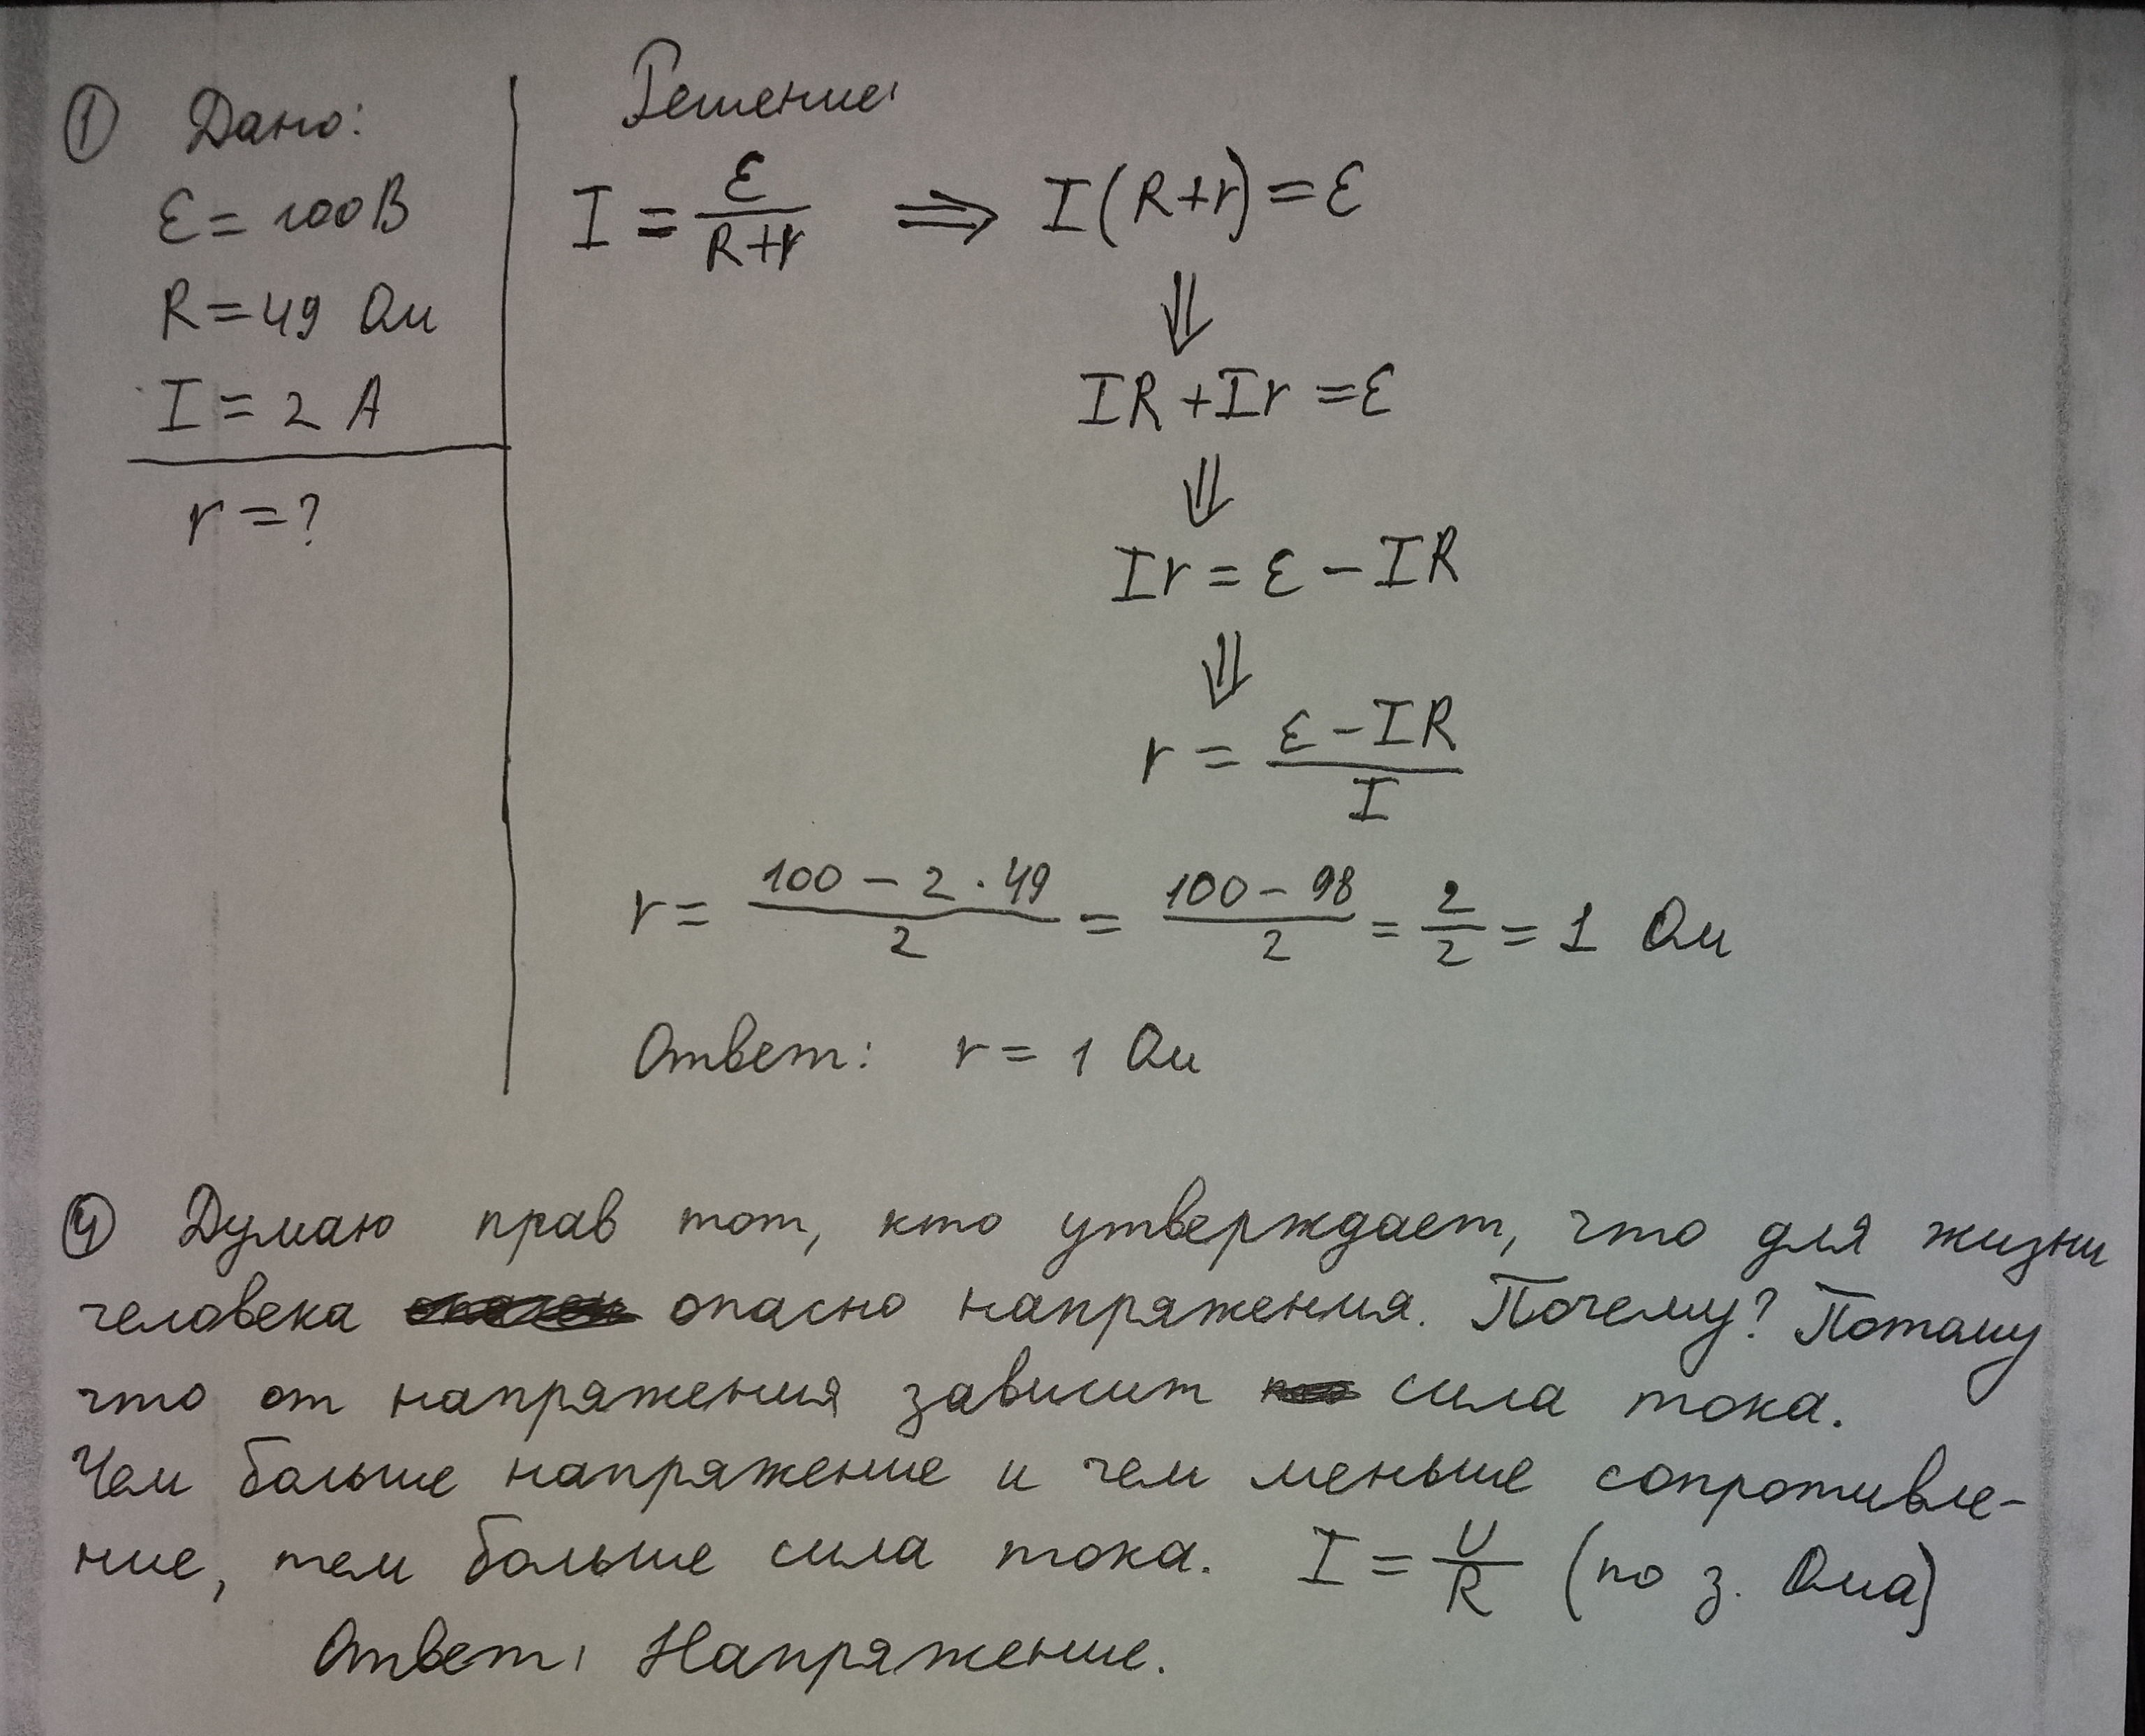 ① Дано:
ε = 100 В
R = 49 Ом
I = 2 А
r = ?
Решение:
I = ε / (R+r) ⇒ I(R+r) = ε
⇓
IR + Ir = ε
⇓
Ir = ε − IR
⇓
r = (ε − IR) / I
r = (100 − 2 · 49) / 2 = (100 − 98) / 2 = 2/2 = 1 Ом
Ответ: r = 1 Ом
④ Думаю прав тот, кто утверждает, что для жизни
человека опасно напряжения. Почему? Потому
что от напряжения зависит сила тока.
Чем больше напряжение и чем меньше сопротивле-
ние, тем больше сила тока. I = U/R (по з. Ома)
Ответ: Напряжение.